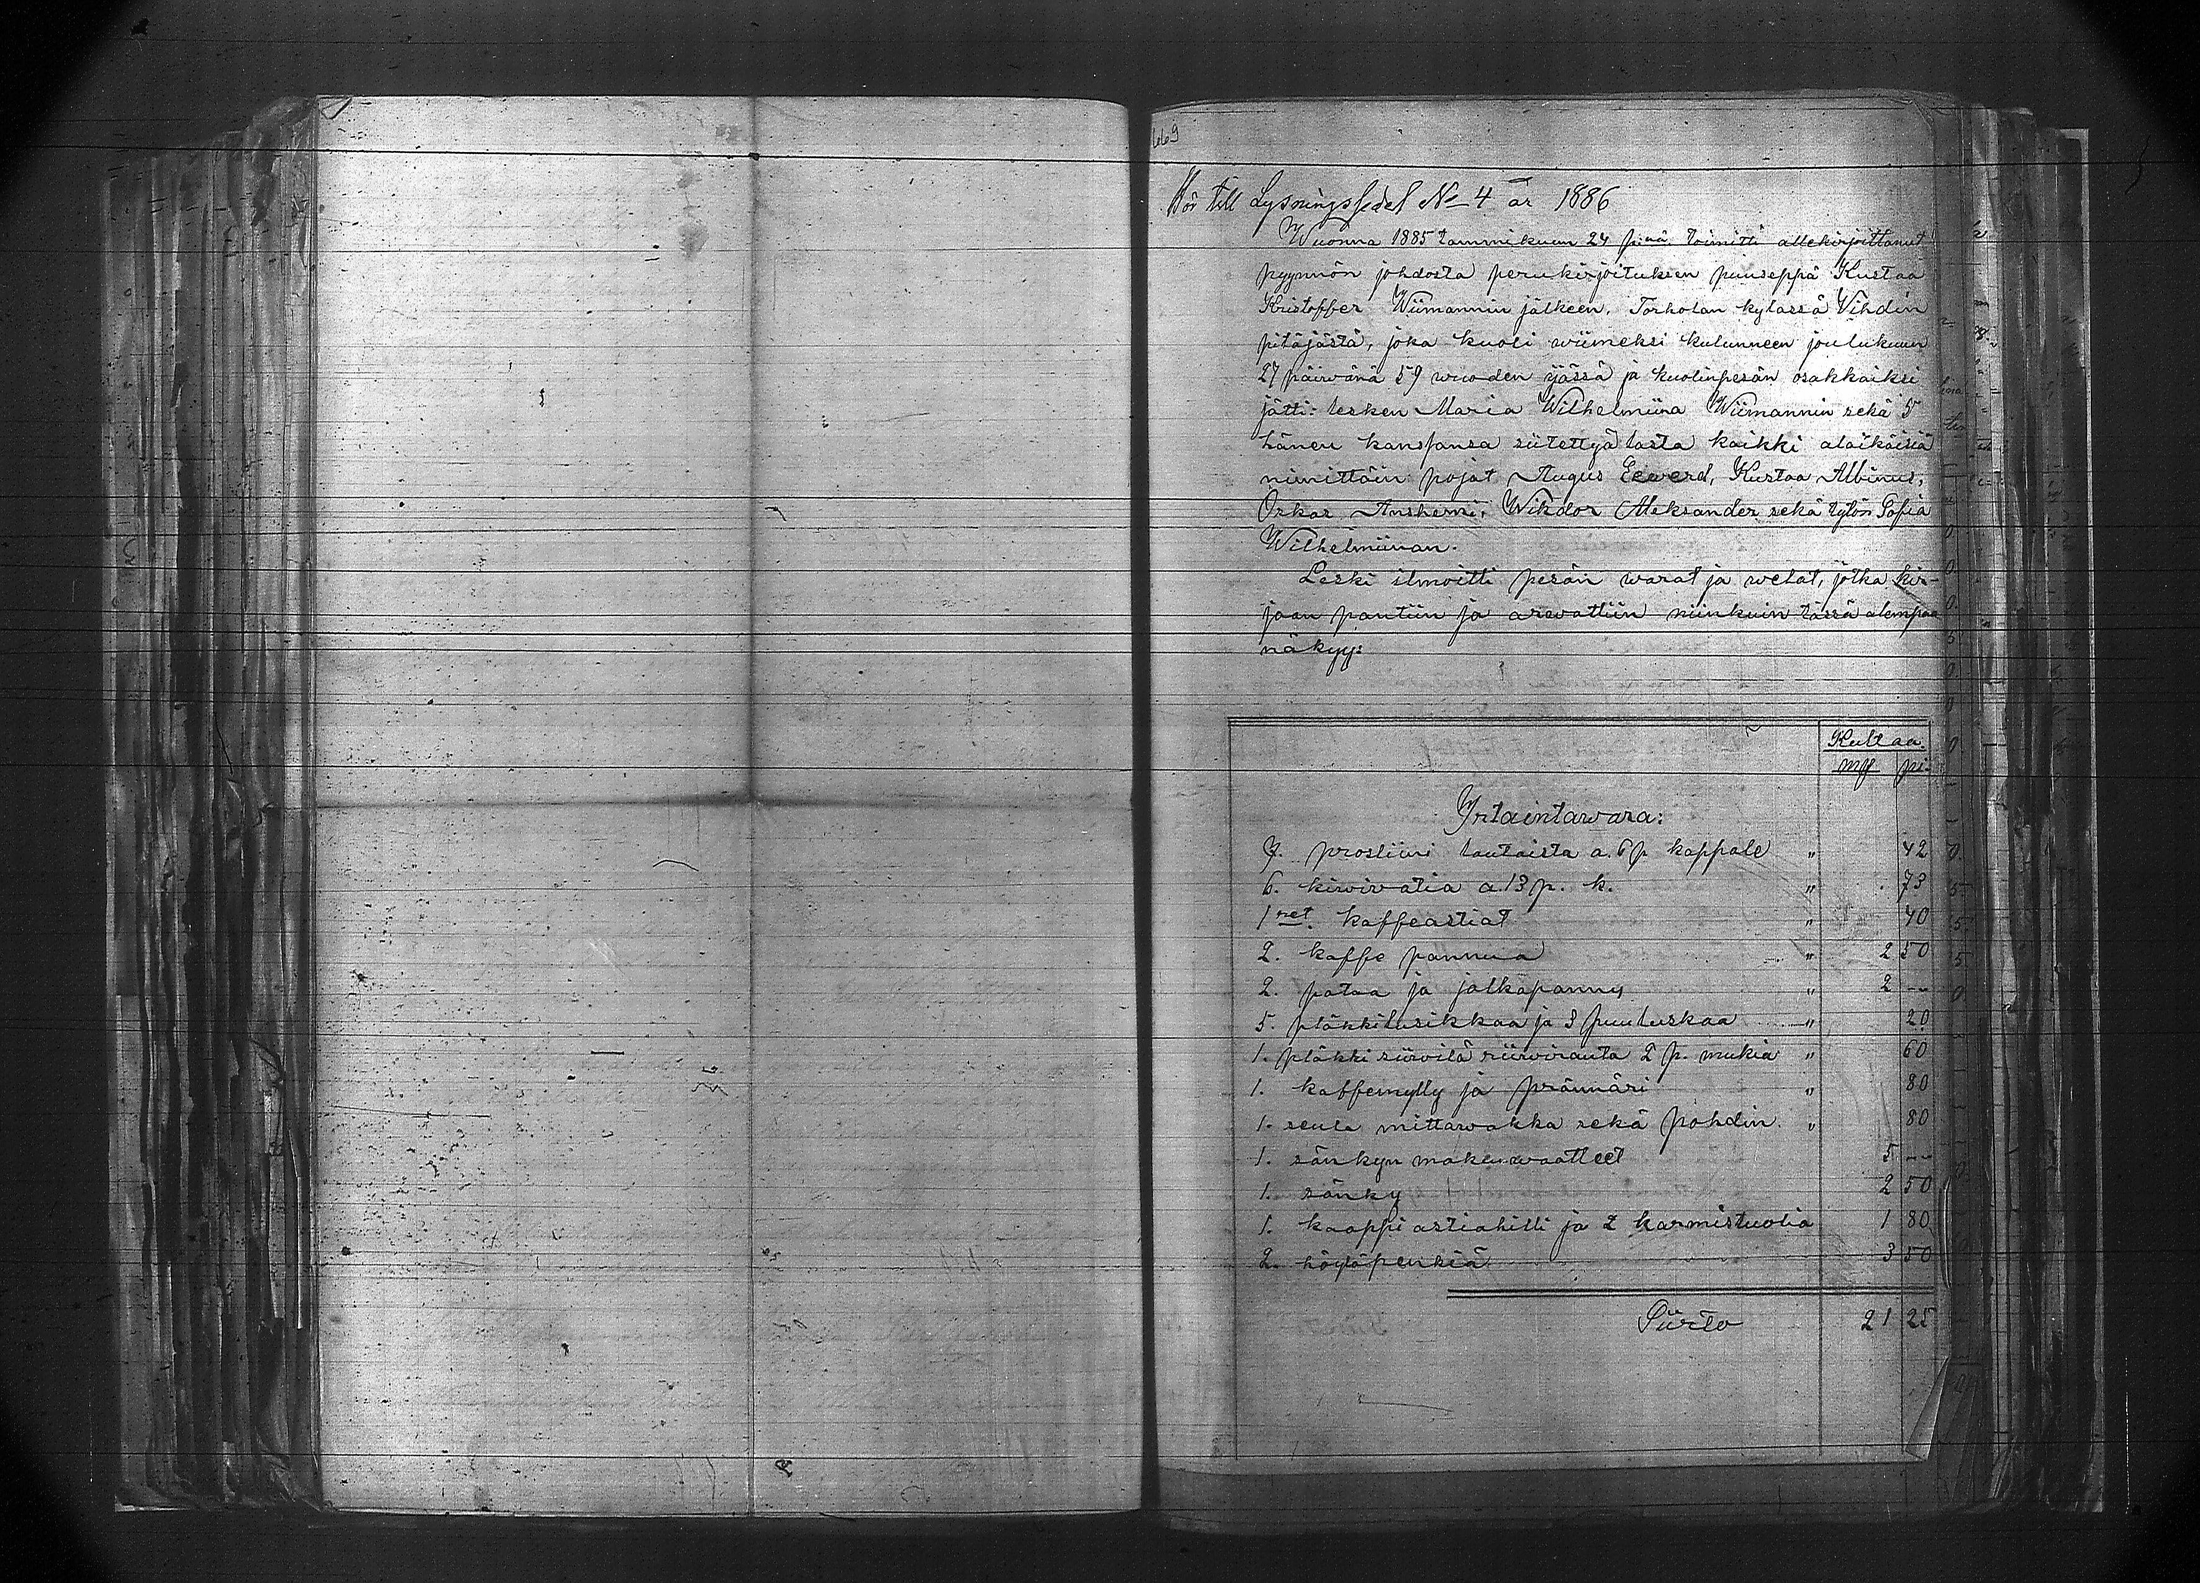 669
Hör till Lysningssedel No 4 år 1886
Wuonna 1885 tammikuun 24 pnä. toimitti allekirjoittanut
pyynnön johdosta perukirjoituksen puuseppä Kustaa
Kristoffer Wiimannin jälkeen, Torholan kylassä Vihdin
pitäjästä, joka kuoli wiimeksi kulunneen joulukuun
27 päiwänä 59 wuoden ijässä ja kuolinpesän osakkaiksi
jätti: lesken Maria Wilhelmiina Wiimannin sekä 5
hänen kanssansa siitettyä lasta kaikki alaikäisiä
nimittäin: pojat Augus Eewerd, Kustaa Albinus,
Oskar Anshemi, Wikdor Aleksander sekä tytön Sofia
Wilhelmiinan.
Leski ilmoitti pesän warat ja welat, jotka kir-
jaan pantiin ja arwattiin niinkuin tässä alempaa
näkyy:
Kultaa.
my pi.
Irtaintawara:
7. prosliini lautaista a. 6 p kappale " 42
6. kiwiwatia a. 13 p. k. " 73
1 set. kaffeastiat " 40
2. kaffe pannua " 2 50
2. pataa ja jalkapannu " 2 --
5. pläkkilusikkaa ja 3 puuluskaa " 20
1. pläkki siiwilä siiwirauta 2 p. mukia " 60
1. kaffemylly ja prännäri " 80
1. seula mittawakka sekä pohdin. " 80
1. sänkyn makuuwaatteet 5 --
1. sänky 2 50
1. kaappi astiahilli ja 2 karmistuolia 1 80
2. höyläpenkiä 3 50
Siirto 21 25